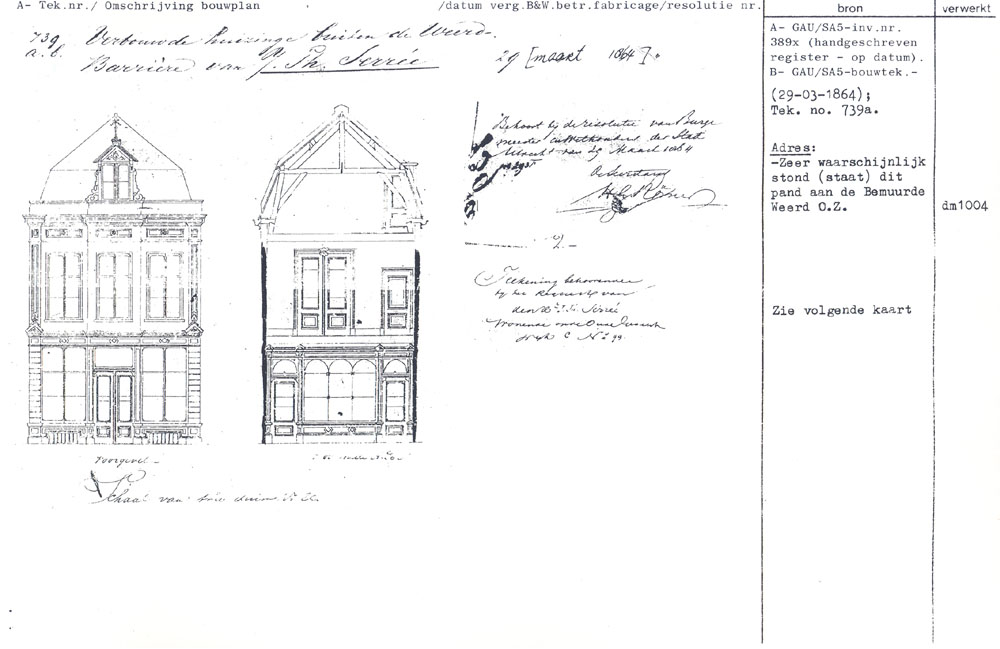 A- Tek.nr./ Omschrijving bouwplan /datum verg.B&W.betr.fabricage/resolutie nr. bron verwerkt
739 a.b. Verbouw de huizinge buiten de Weerd-
Barrière van J. Th. Serrée 29 [maart 1864].
A- GAU/SA5-inv.nr.
389x (handgeschreven
register - op datum).
B- GAU/SA5-bouwtek.-
(29-03-1864);
Tek. no. 739a.
Adres:
-Zeer waarschijnlijk
stond (staat) dit
pand aan de Bemuurde
Weerd O.Z. dm1004
Zie volgende kaart
Behoort bij de resolutie van Burge
meester en Wethouders der Stad
Utrecht van 29 Maart 1864
De Secretaris
2.
Teekening behoorende
bij het Rekwest van
den Serrée
wonende
wijk C No 99.
Voorgevel
Schaal van duim